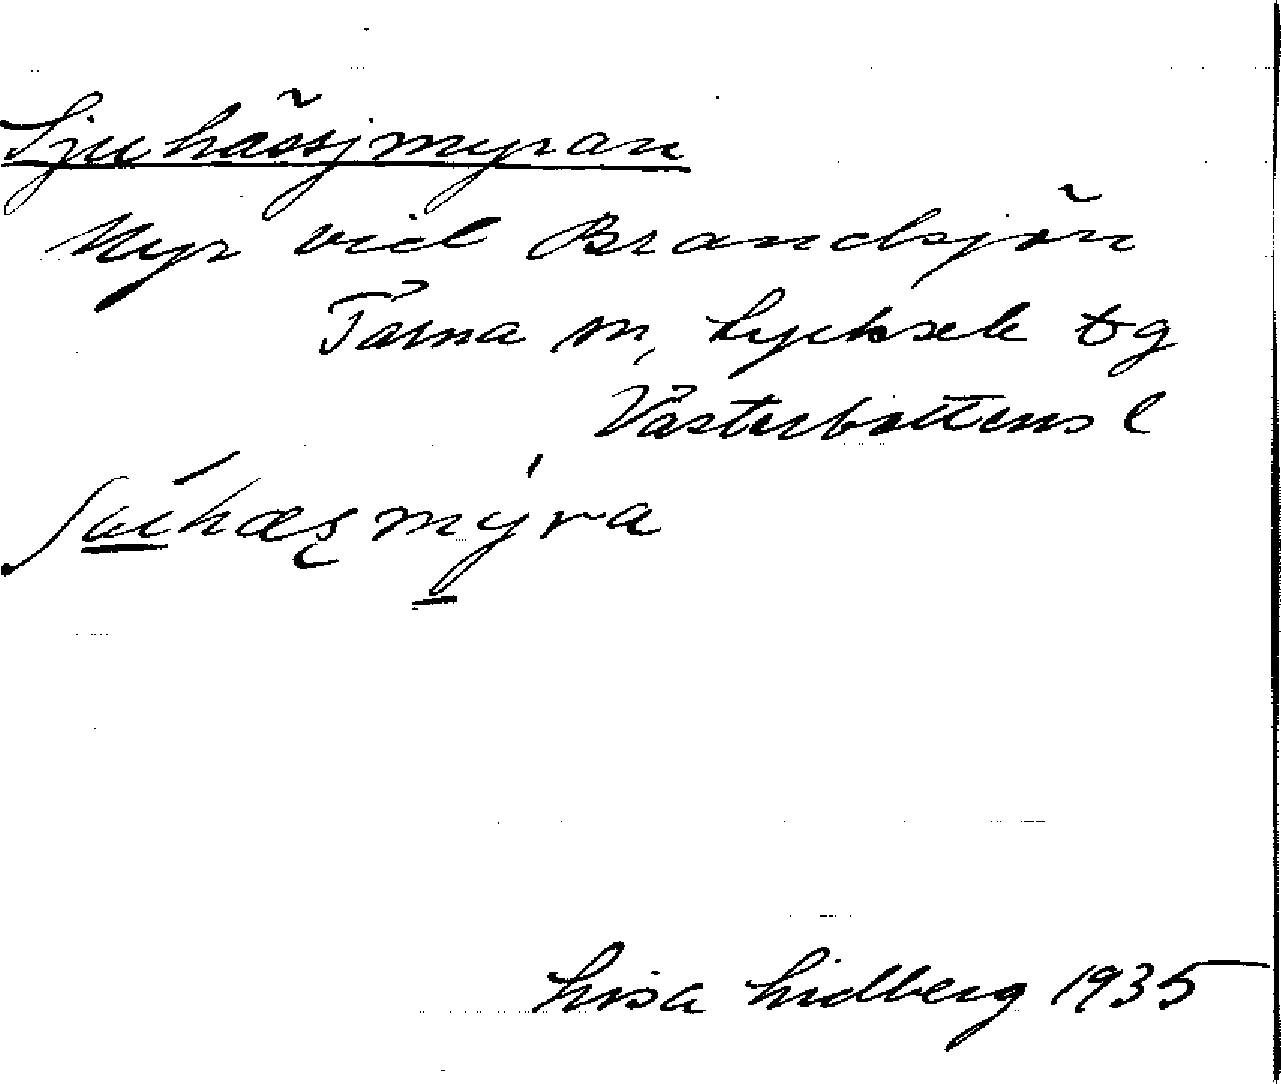 Ljuhässjmyran
Myr vid Brandsjön
Tärna sn, Lycksele tg
Västerbottens l
mýra
Lisa Lidberg 1935